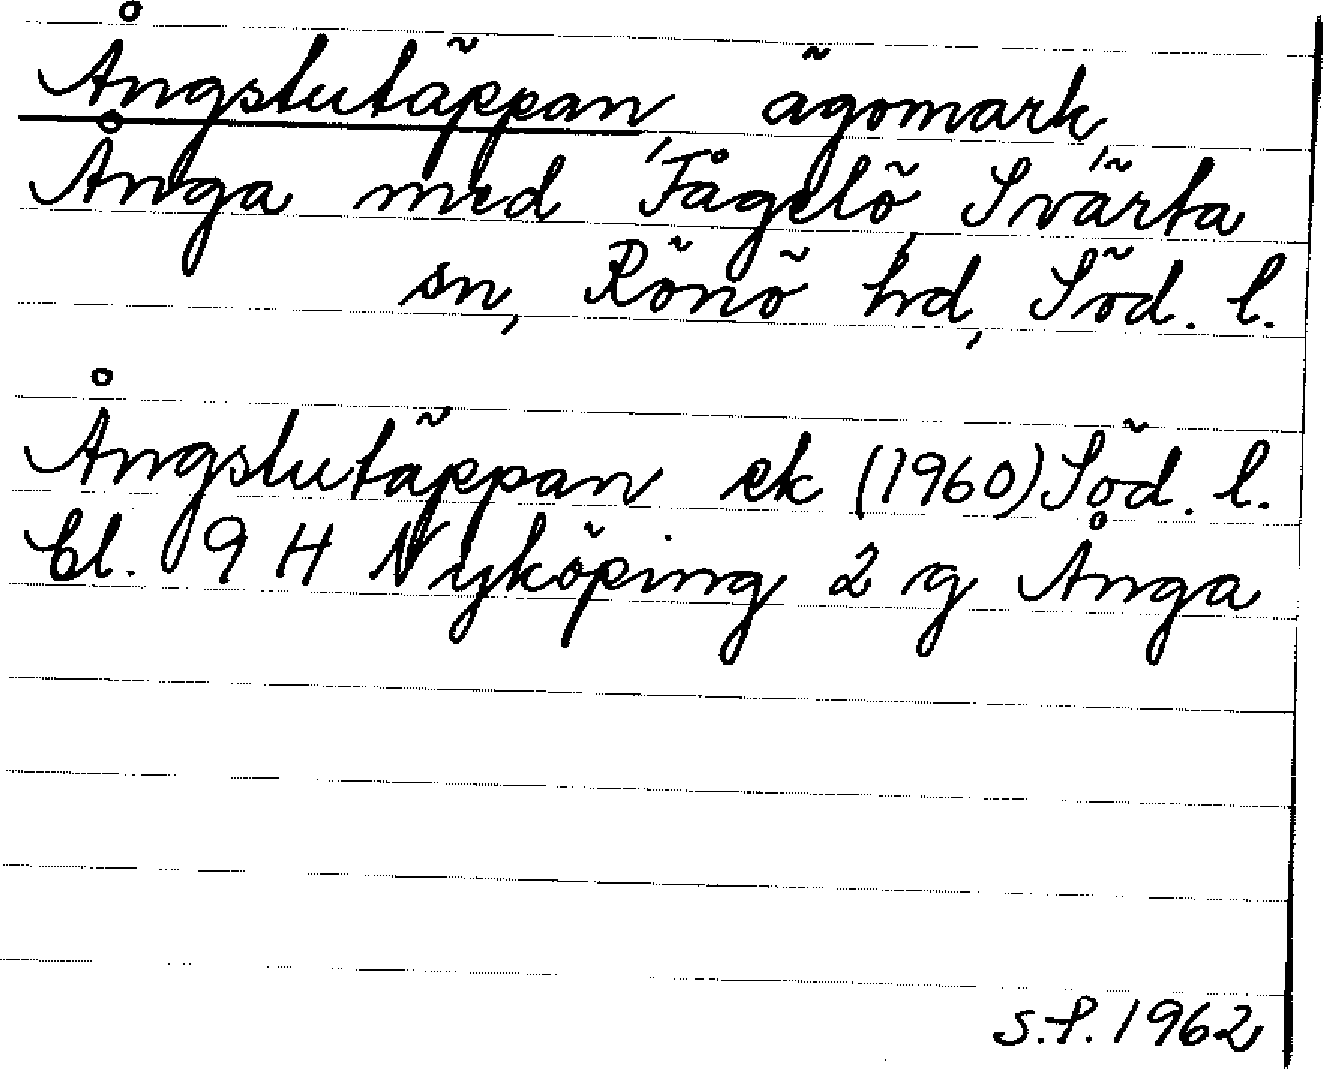 Ångstutäppan, ägomark,
Ånga med Fågelö, Svärta
sn, Rönö hd, Söd. l.
Ångstutäppan ek (1960) Söd. l.
bl. 9 H Nyköping 2 g Ånga
S.P. 1962